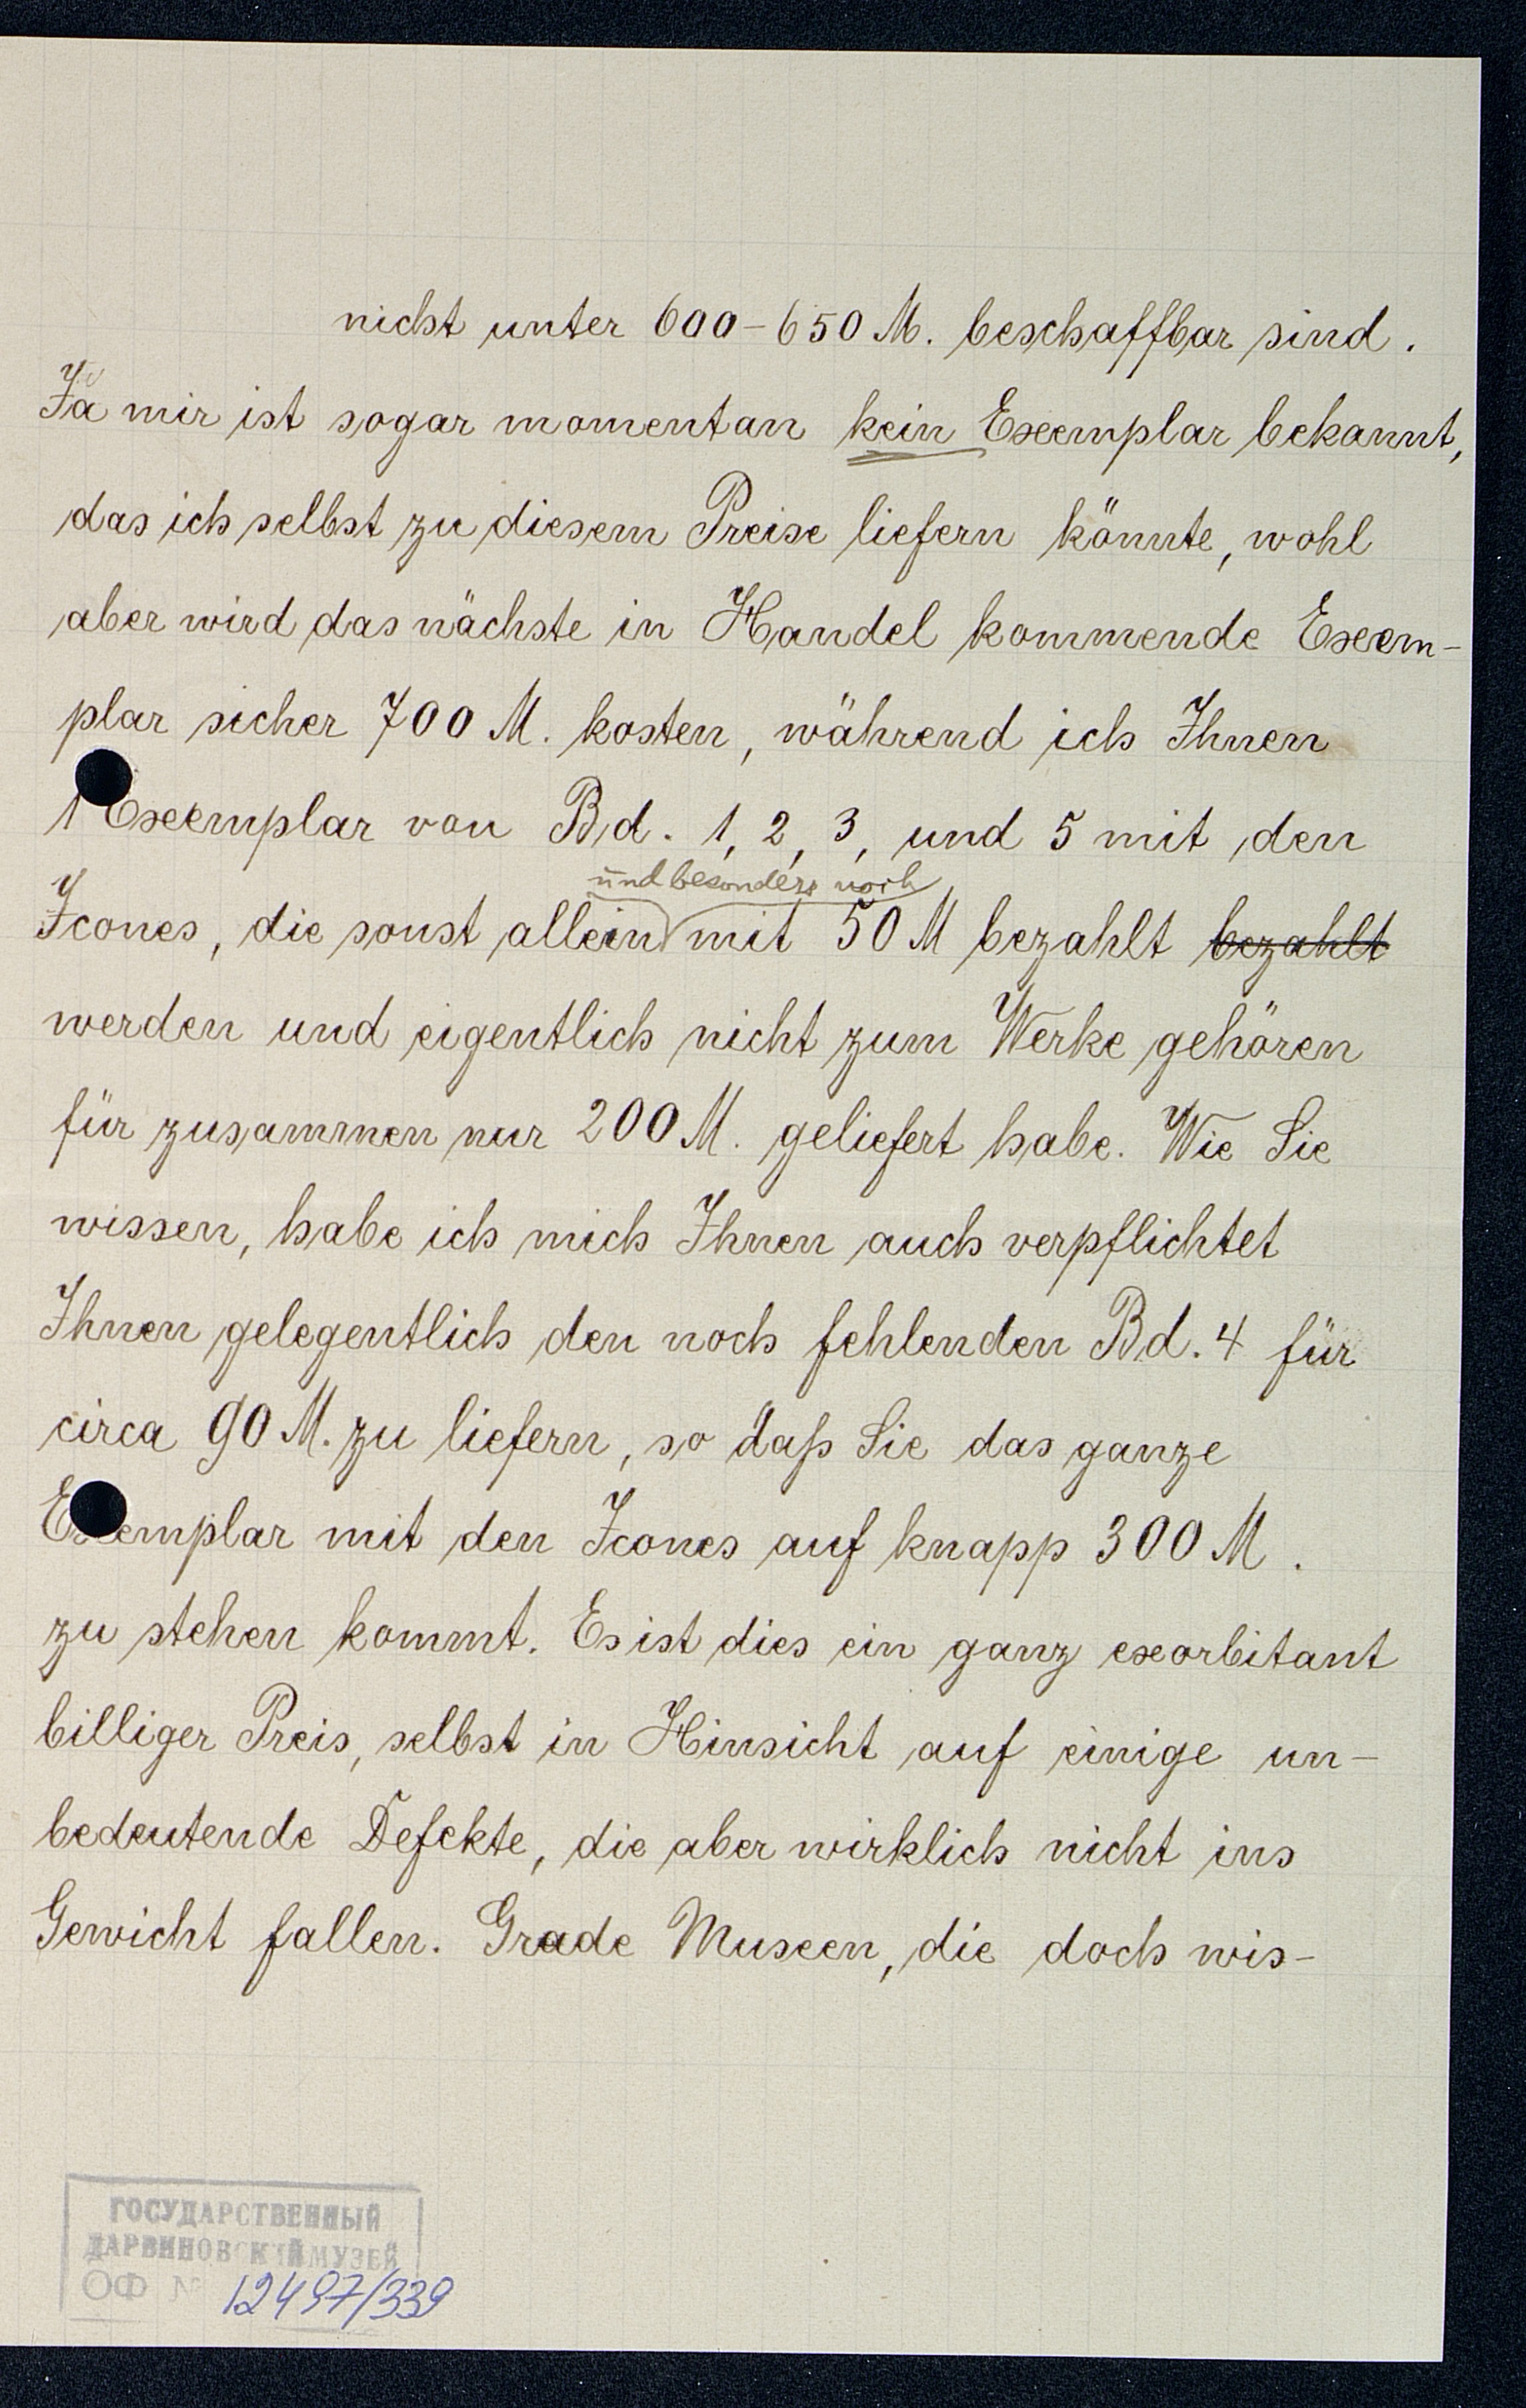 nicht unter 600-650 M. beschaffbar sind.
Ja mir ist sogar momentan kein Exemplar bekannt,
das ich selbst zu diesem Preise liefern könnte, wohl
aber wird das nächste in Handel kommende Exem-
plar sicher 700 M. kosten, während ich Ihnen
1 Exemplar von Bd. 1, 2, 3, und 5 mit den
und besonders noch
Icones, die sonst allein mit 50 M bezahlt bezahlt
werden und eigentlich nicht zum Werke gehören
für zusammen nur 200 M. geliefert habe. Wie Sie
wissen, habe ich mich Ihnen auch verpflichtet
Ihnen gelegentlich den noch fehlenden Bd. 4 für
circa 90 M. zu liefern, so daß Sie das ganze
Exemplar mit den Icones auf knapp 300 M.
zu stehen kommt. Es ist dies ein ganz exorbitant
billiger Preis, selbst in Hinsicht auf einige un-
bedeutende Defekte, die aber wirklich nicht ins
Gewicht fallen. Grade Museen, die doch wis-
ГОСУДАРСТВЕННЫЙ
ДАРВИНОВСКИЙ МУЗЕЙ
ОФ № 12497/339